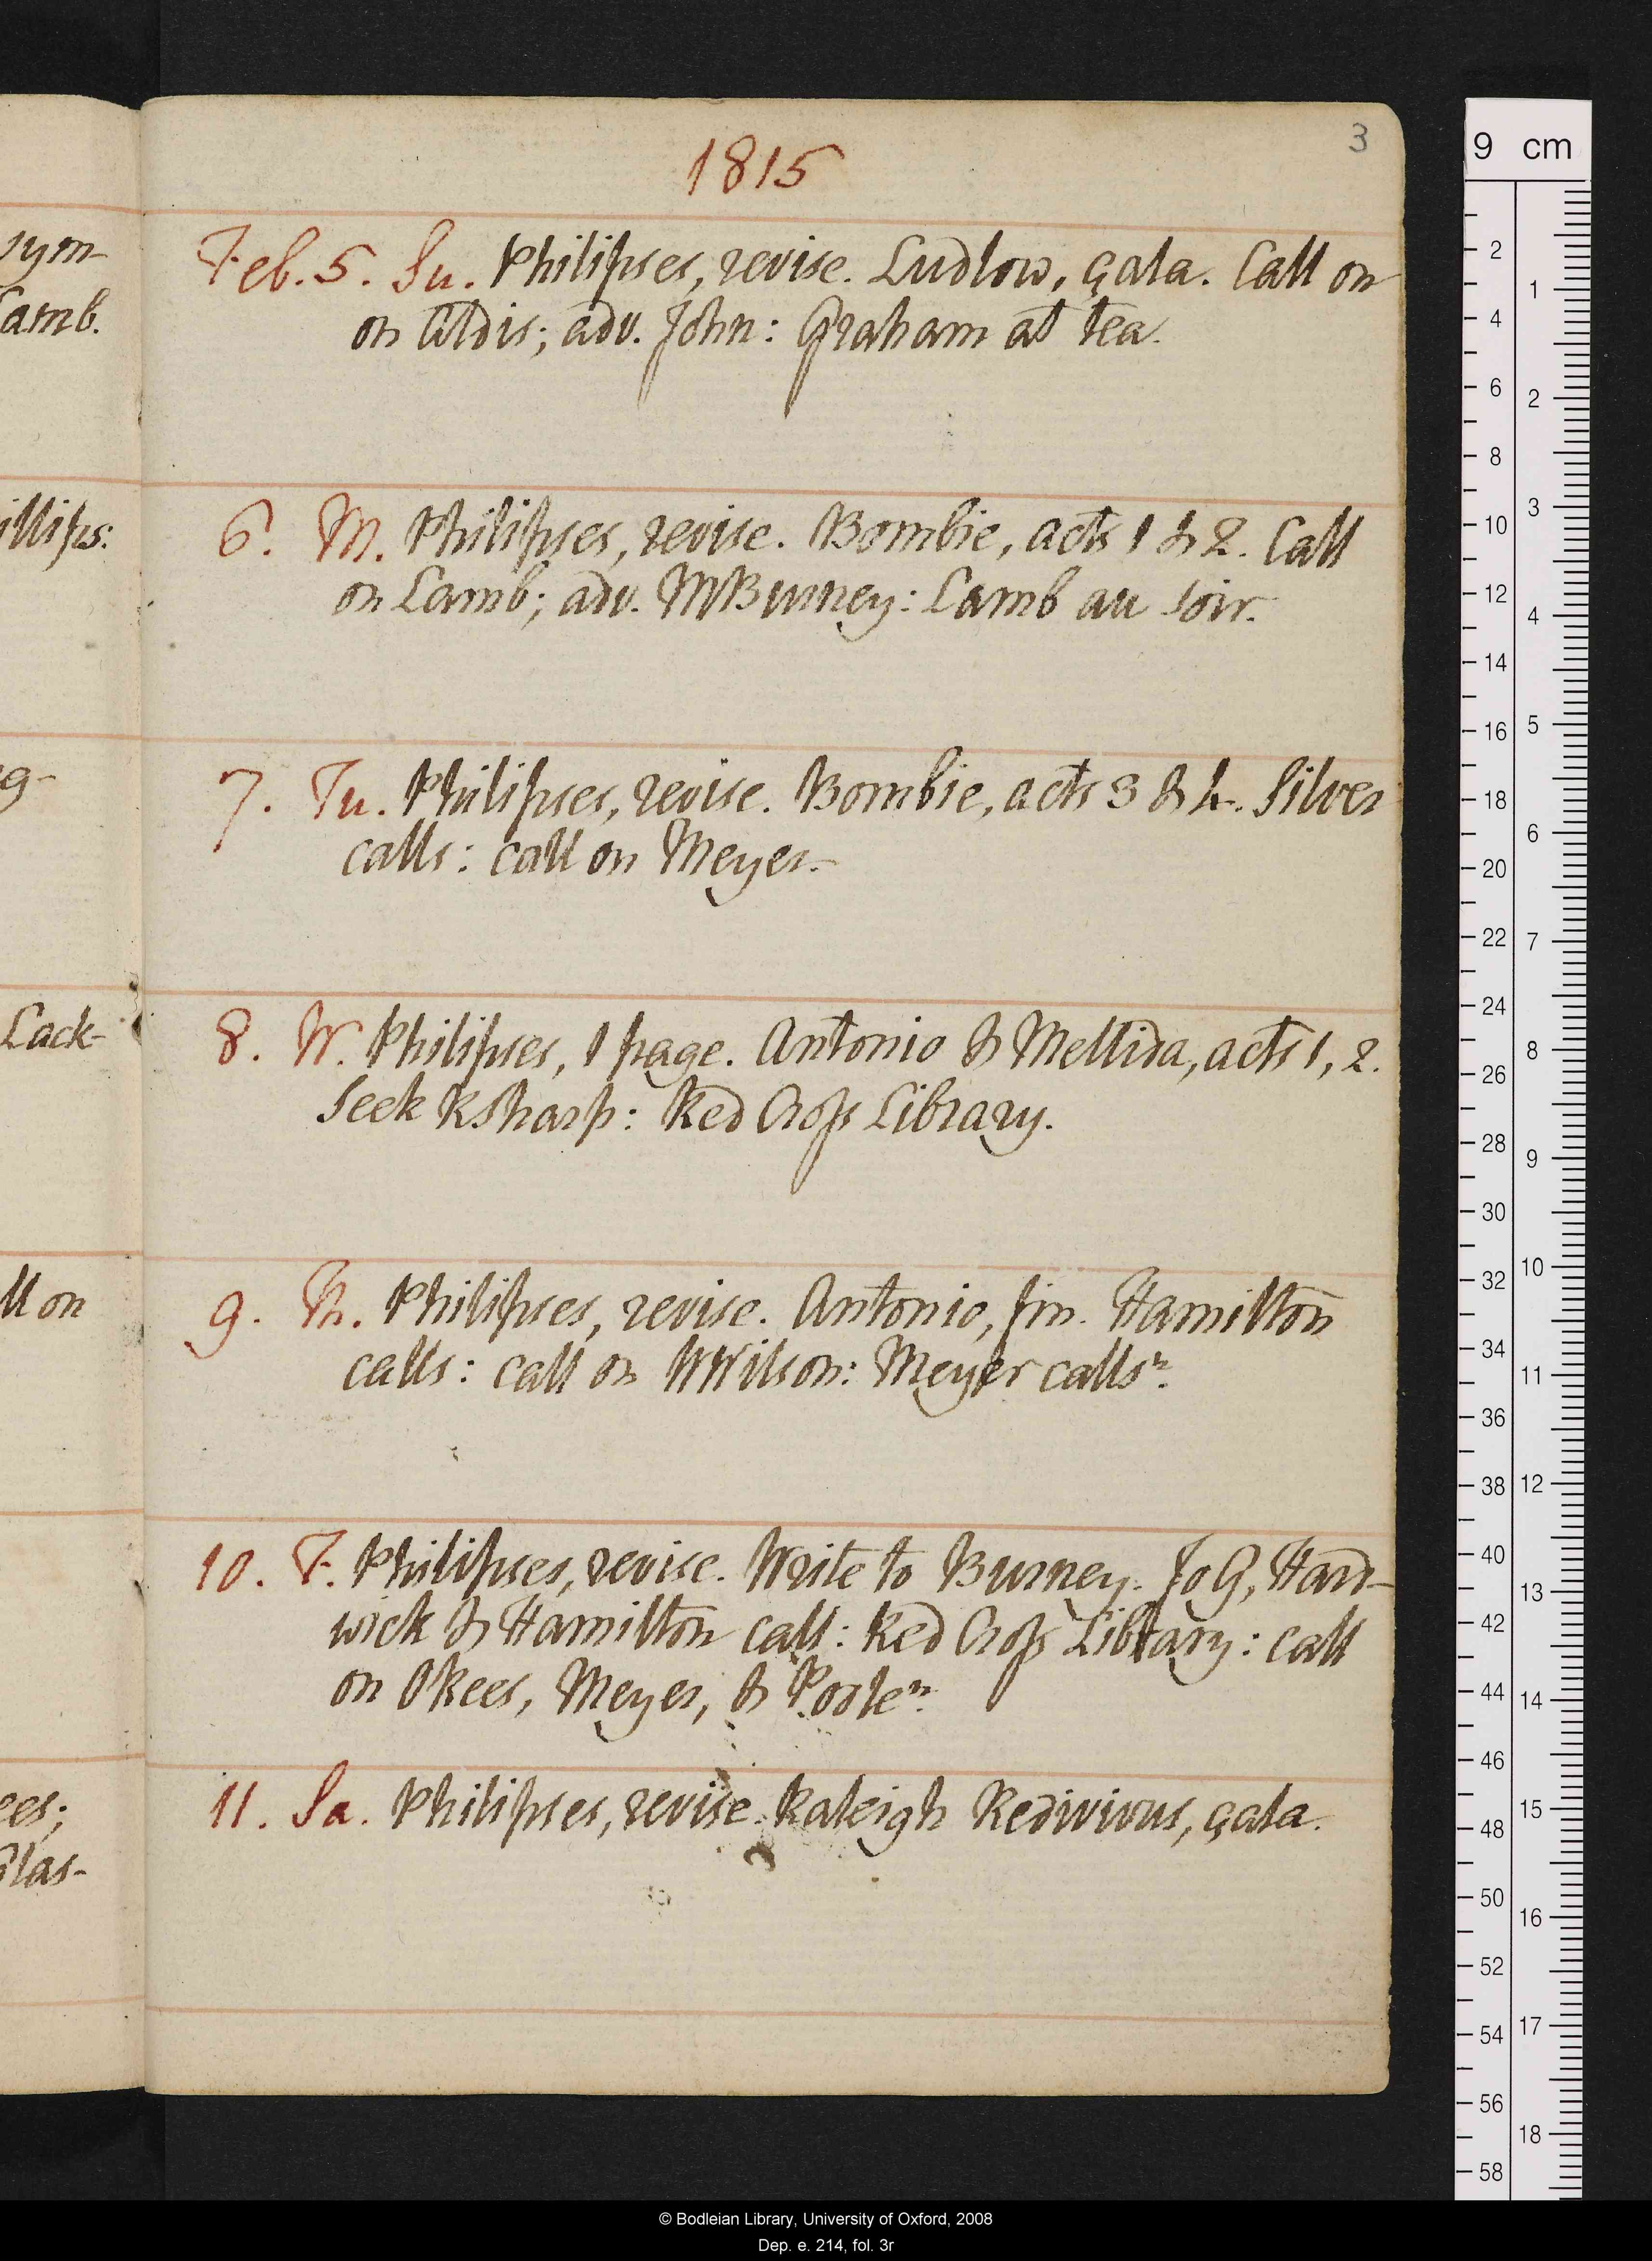 3
1815
Feb. 5. Su. Philipses, revise. Ludlow, çala. Call on
on Aldis; adv. John: Graham at tea.
6. M. Philipses, revise. Bombie, acts 1 & 2. Call
on Lamb; adv. MBurney: Lamb au soir.
7. Tu. Philipses, revise. Bombie, acts 3 & 4. Silver
calls: call on Meyer.
8. W. Philipses, 1 page. Antonio & Mellida, acts 1, 2.
Seek RSharp: Red Cross Library.
9. Th. Philipses, revise. Antonio, fin. Hamilton
calls: call on WWilson: Meyer calls n.
10. F. Philipses, revise. Write to Burney. JoG, Hard-
wick & Hamilton call: Red Cross Library: call
on ORees, Meyer, & Poole n.
11. Sa. Philipses, revise. Raleigh Redivivus, çala.
sym-
Lamb.
illips:
g-
Lack-
ll on
ees;
Glas-
9 cm
2
4
6
8
10
12
14
16
18
20
22
24
26
28
30
32
34
36
38
40
42
44
46
48
50
52
54
56
58
1
2
3
4
5
6
7
8
9
10
11
12
13
14
15
16
17
18
© Bodleian Library, University of Oxford, 2008
Dep. e. 214, fol. 3r